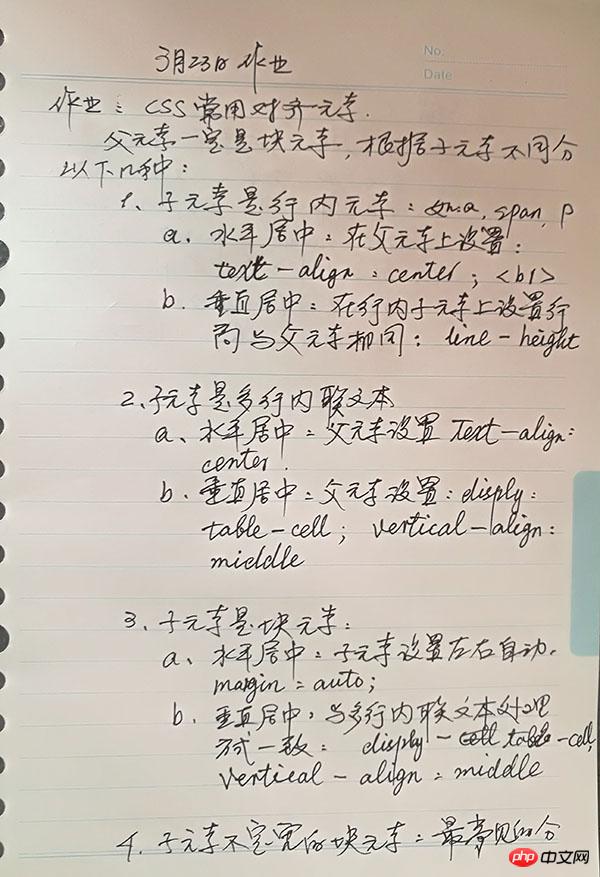 No:
Date
3月23日作业
作业：CSS常用对齐元素.
父元素一定是块元素，根据子元素不同分
以下几种：
1、子元素是行内元素：如:a, span, p
a. 水平居中：在父元素上设置：
text-align：center；
b. 垂直居中：在行内子元素上设置行
高与父元素相同：line-height
2、子元素是多行内联文本
a、水平居中：父元素设置 Text-align：
center.
b. 垂直居中：父元素设置：disply：
table-cell； vertical-align：
middle
3、子元素是块元素：
a、水平居中：子元素设置左右自动.
margin：auto；
b. 垂直居中，与多行内联文本处理
方式一致： disply-table-cell,
vertical-align：middle
4、子元素不定宽的块元素：最常见的分
php 中文网